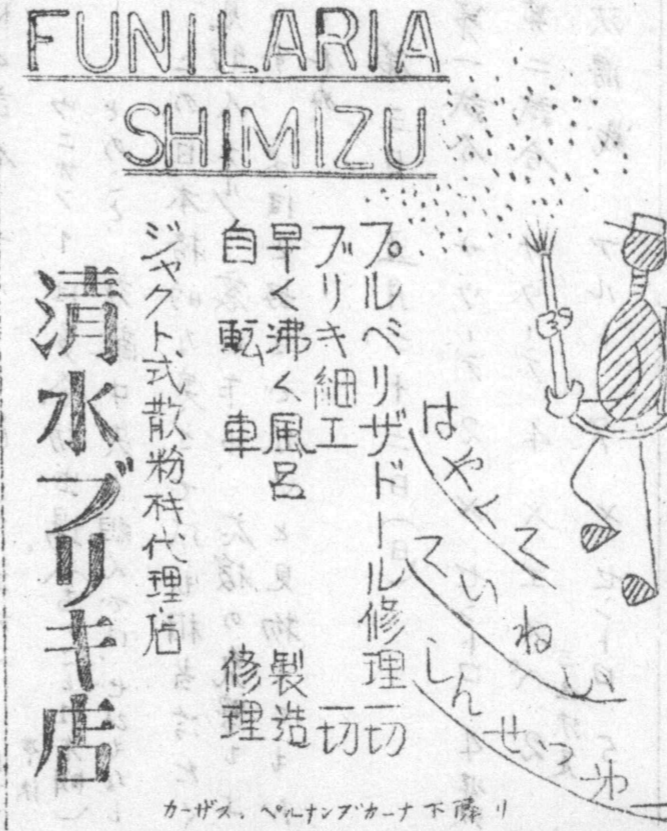 FUNILARIA
SHIMIZU
はやくて
ていねい
しんせつや
プルベリザドール修理一切
ブリキ細工一切
早く沸く風呂製造
自転車修理
ジャクト式散粉林代理店
清水ブリキ店
カーザス、ペルナンブカーナ下隣リ